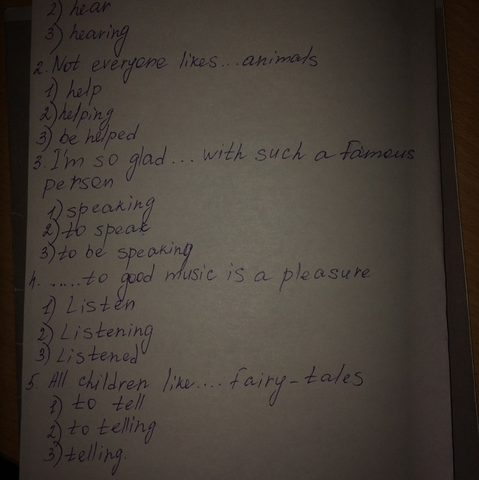 2) hear
3) hearing
2. Not everyone likes...animals
1) help
2) helping
3) be helped
3. I'm so glad... with such a famous
person
1) speaking
2) to speak
3) to be speaking
4. ......to good music is a pleasure
1) Listen
2) Listening
3) Listened
5. All children like.... fairy-tales
1) to tell
2) to telling
3) telling.